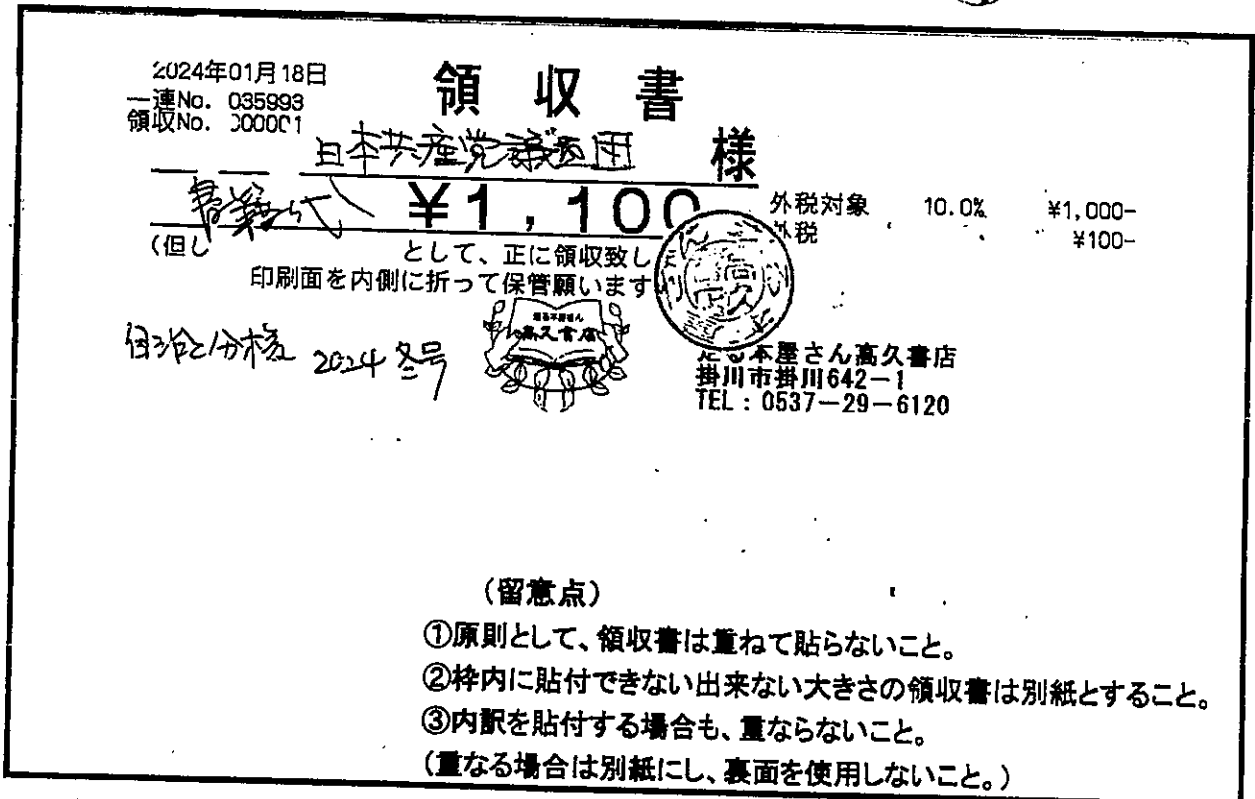 2024年01月18日
一連No. 035993
領収No. 000001
領収書
日本共産党議員団 様
書籍代 ¥1,100
外税対象 10.0% ¥1,000-
外税 ¥100-
(但し として、正に領収致し
印刷面を内側に折って保管願います
2024 冬号
高久書店
走る本屋さん高久書店
掛川市掛川642-1
TEL:0537-29-6120
(留意点)
①原則として、領収書は重ねて貼らないこと。
②枠内に貼付できない出来ない大きさの領収書は別紙とすること。
③内訳を貼付する場合も、重ならないこと。
(重なる場合は別紙にし、裏面を使用しないこと。)